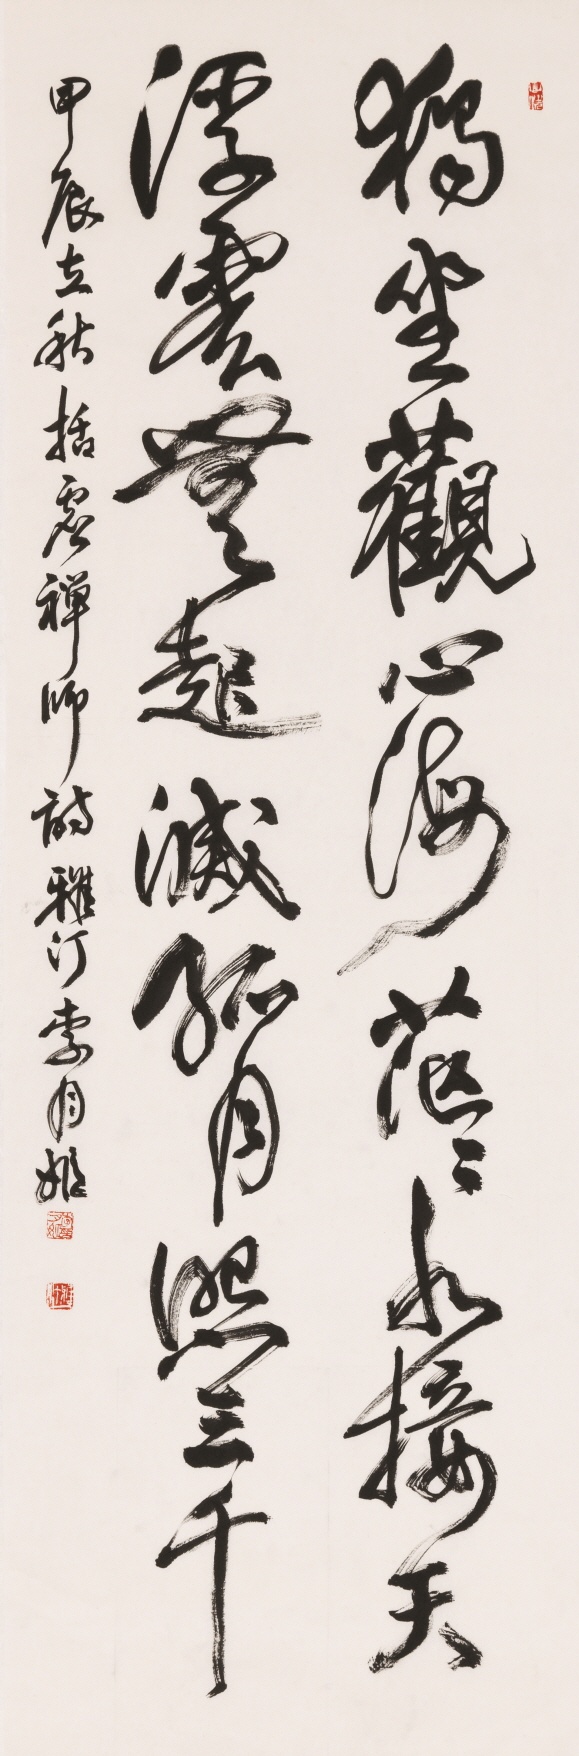 獨坐觀心海茫〻水接天
浮雲無起滅孤月照三千
甲辰立秋括虛禪師詩雅汀李月姬